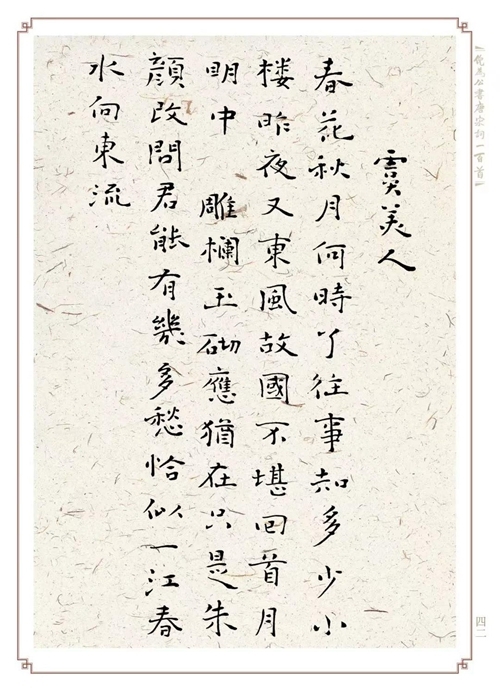 公書唐宋詞一百首
虞美人
春花秋月何時了往事知多少小
楼昨夜又東風故國不堪回首月
明中 雕欄玉砌應猶在只是朱
顔改問君能有幾多愁恰似一江春
水向東流
四二